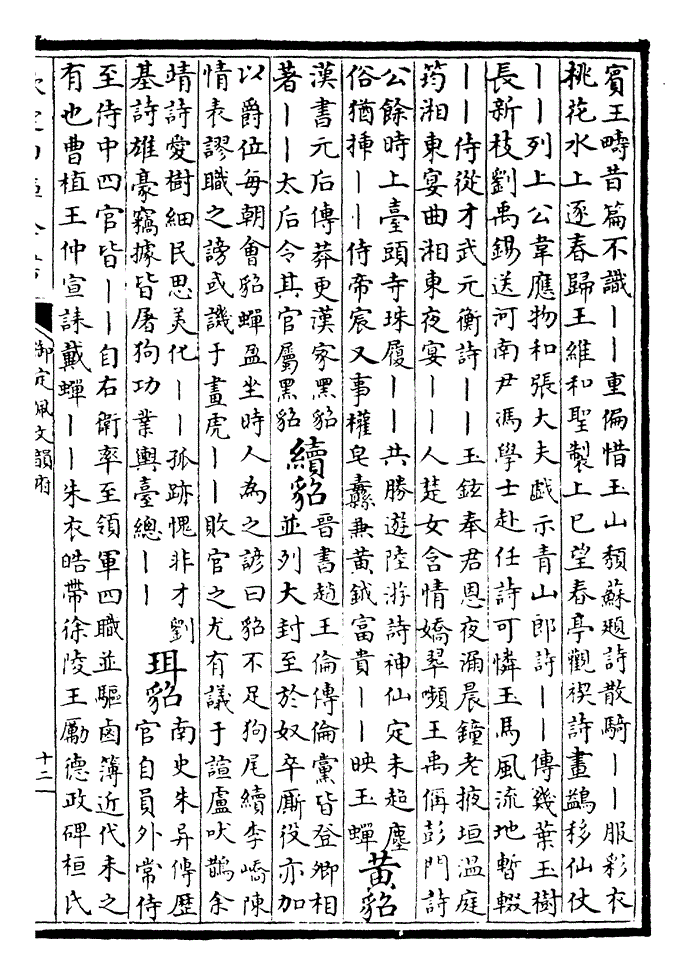 賓王疇昔篇不識丨丨重偏惜玉山頽蘇頲詩散騎丨丨服彩衣
桃花水上逐春歸王維和聖製上巳望春亭觀禊詩畫鷁移仙仗
丨丨列上公韋應物和張大夫戲示青山郎詩丨丨傳幾葉玉樹
長新枝劉禹錫送河南尹馮學士赴任詩可憐玉馬風流地暫輟
丨丨侍從才武元衡詩丨丨玉鉉奉君恩夜漏晨鐘老掖垣温庭
筠湘東宴曲湘東夜宴丨丨人楚女含情嬌翠嚬王禹偁彭門詩
公餘時上臺頭寺珠履丨丨共勝遊陸游詩神仙定未超塵
俗猶揷丨丨侍帝宸又事權皂纛兼黄鉞富貴丨丨映玉蟬
黄貂
漢書元后傳莽更漢家黑貂
著丨丨太后令其官屬黑貂
續貂
晉書趙王倫傳倫黨皆登卿相
並列大封至於奴卒厮役亦加
以爵位每朝會貂蟬盈坐時人為之諺曰貂不足狗尾續李嶠陳
情表謬職之謗或譏于畫虎丨丨敗官之尤有議于諠盧吠鵲余
靖詩愛樹細民思美化丨丨孤跡愧非才劉
基詩雄豪竊據皆屠狗功業輿臺總丨丨
珥貂
南史朱异傳歷
官自員外常侍
至侍中四官皆丨丨自右衛率至領軍四職並驅鹵簿近代未之
有也曹植王仲宣誄戴蟬丨丨朱衣皓帶徐陵王勵德政碑桓氏
御定佩文韻府
十二